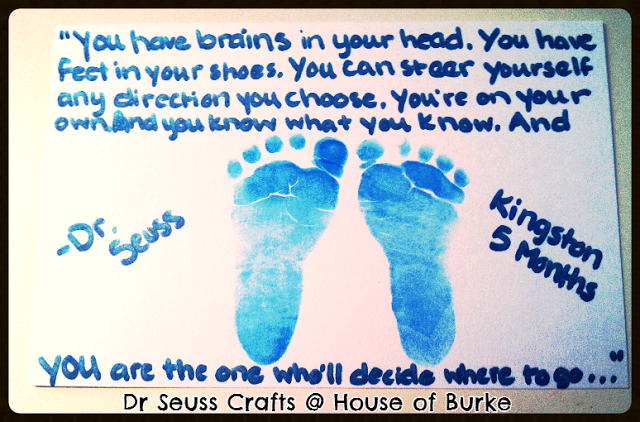 "You have brains in your head. You have
feet in your shoes. You can steer yourself
any direction you choose. You're on your
own. And you know what you know. And
-Dr.
Seuss
Kingston
5 Months
YOU are the one who'll decide where to go..."
Dr Seuss Crafts @ House of Burke